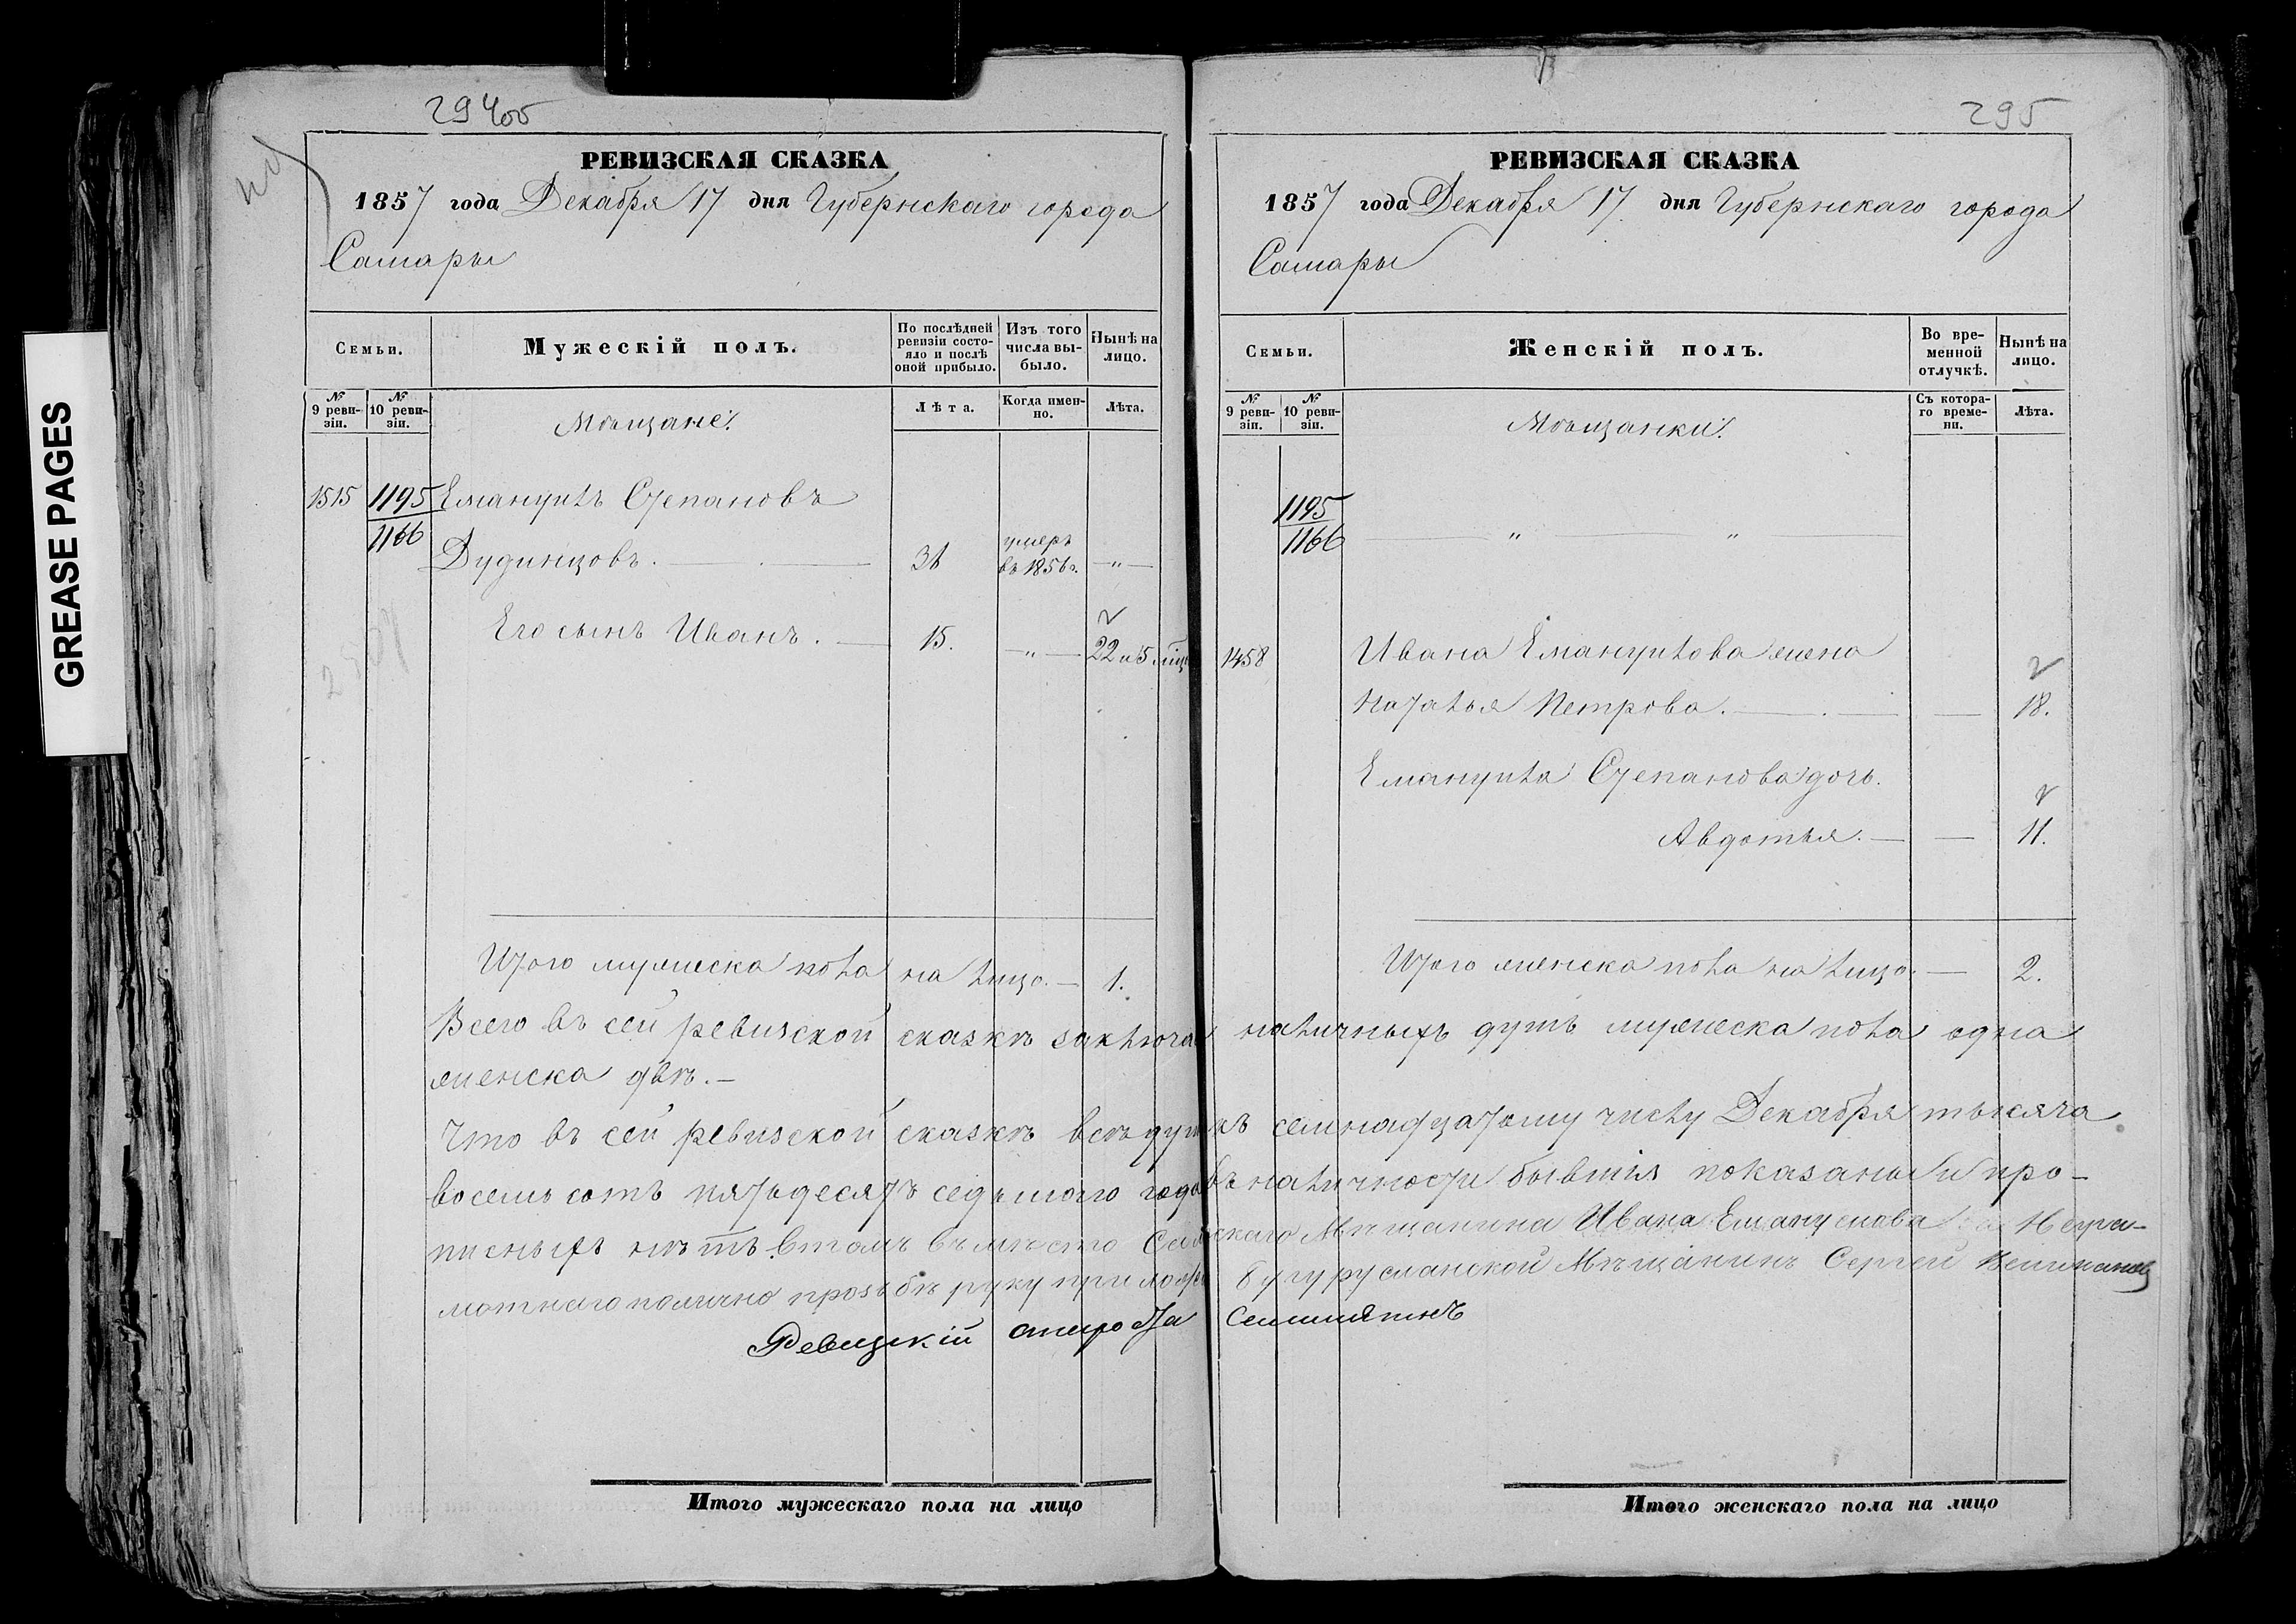 294об
РЕВИЗСКАЯ СКАЗКА
1857 года Декабря 17 дня Губернскаго города
Самары
Семьи.
Мужескій полъ.
По послѣдней ревизіи состояло и послѣ оной прибыло.
Изъ того числа выбыло.
Нынѣ на лицо.
№ 9 ревизіи.
№ 10 ревизіи.
Мѣщане:
Лѣта.
Когда именно.
Лѣта.
1515 1195 Емануилъ Степановъ
1166
Дудинцовъ. умеръ въ 1856 г. "
Его сынъ Иванъ. 15. " 22 и 5 мѣц
Итого мужеска пола на лицо. 1.
GREASE PAGES
295
РЕВИЗСКАЯ СКАЗКА
1857 года Декабря 17 дня Губернскаго города
Самары
Семьи.
Женскій полъ.
Во временной отлучкѣ.
Нынѣ на лицо.
№ 9 ревизіи.
№ 10 ревизіи.
Мѣщанки:
Съ котораго времени.
Лѣта.
1195
1166 " "
1458 Ивана Емануилова жена
Наталья Петрова. 18.
Емануила Степанова дочь.
Авдотья. 11.
Итого женска пола на лицо. 2.
Всего въ сей ревизской сказкѣ заключа наличныхъ душъ мужеска пола одна
женска двѣ.
Что въ сей ревизской сказкѣ всѣ душ къ семнадцатому числу Декабря тысяча
восемь сотъ пятьдесятъ седьмого года въ наличности бывшія показаны и про-
писныхъ нѣтъ втомъ въместо Сам скаго Мѣщанина Ивана Емануелова Негра-
мотнаго полично прозьбѣ руку приложи Бугурусланской Мѣщанинъ Сергей
Ревизкій староста
Итого мужескаго пола на лицо
Итого женскаго пола на лицо